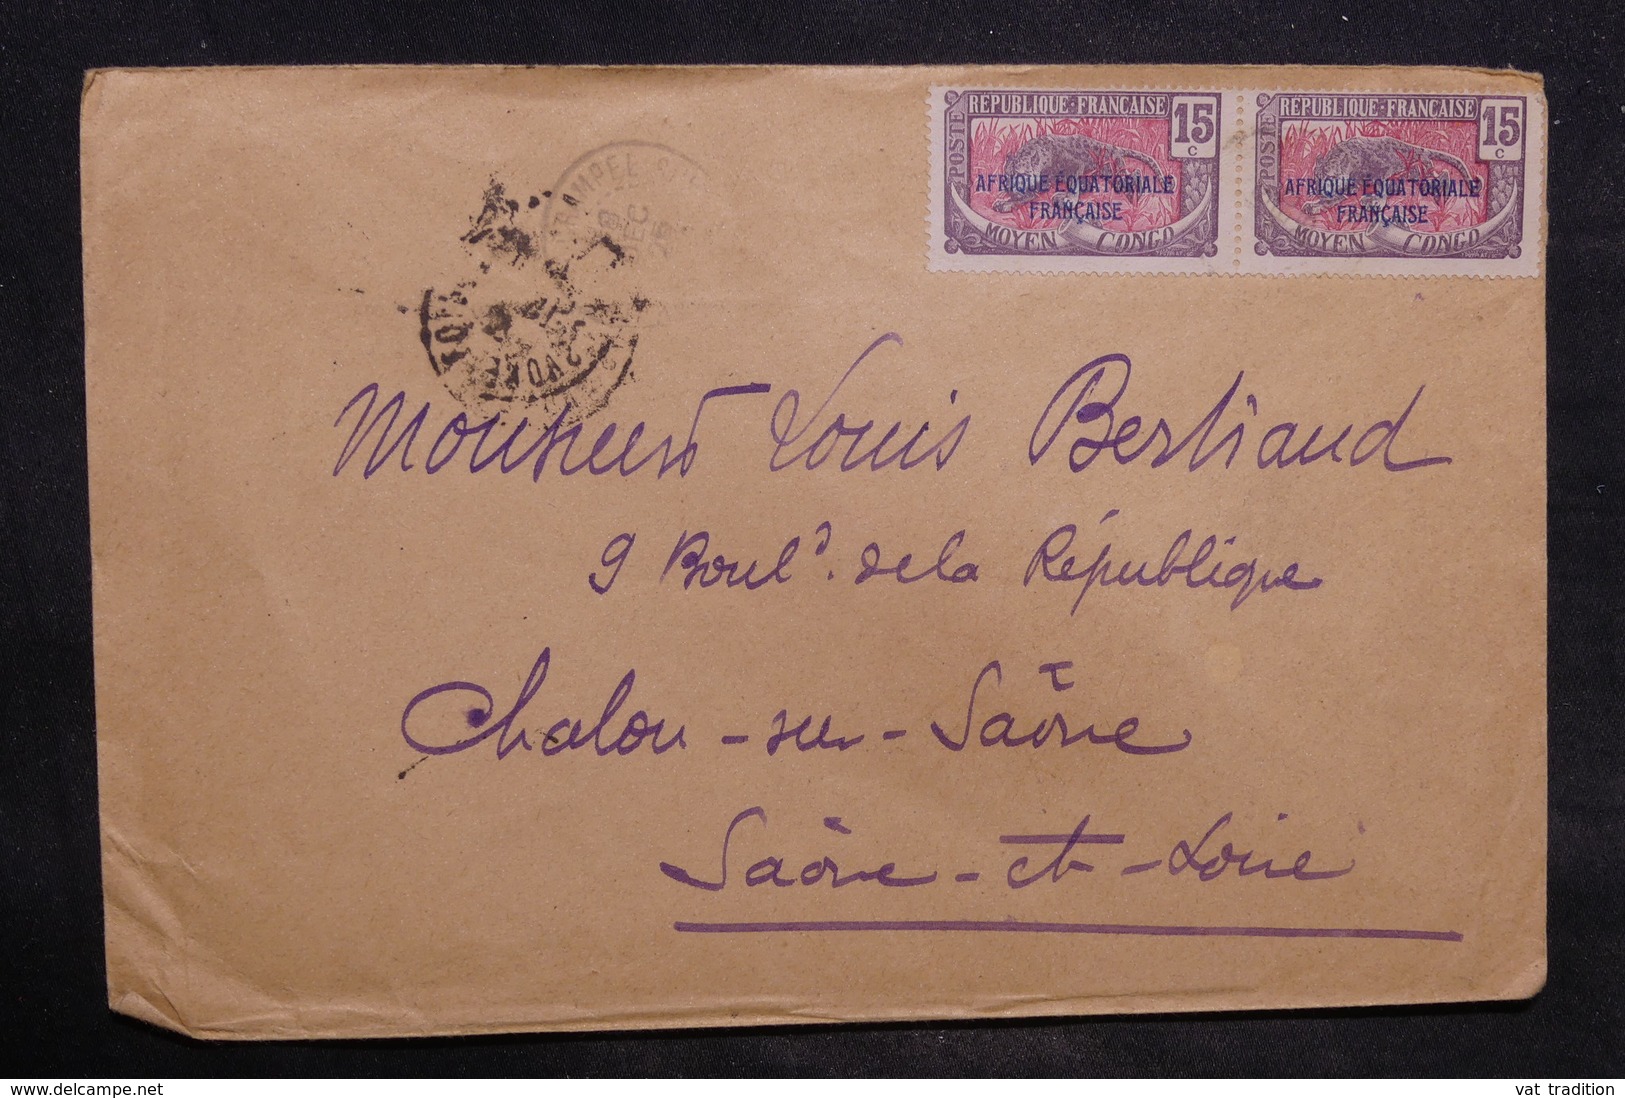 RÉPUBLIQUE·FRANÇAISE 15 c
POSTE
AFRIQUE ÉQUATORIALE
FRANÇAISE
MOYEN CONGO
RÉPUBLIQUE·FRANÇAISE 15 c
POSTE
AFRIQUE ÉQUATORIALE
FRANÇAISE
MOYEN CONGO
DEC
25
Monsieur Louis Bertraud
9 Boul^d. de la République
Chalon-sur-Saône
Saône-et-Loire
www.delcampe.net
vat tradition